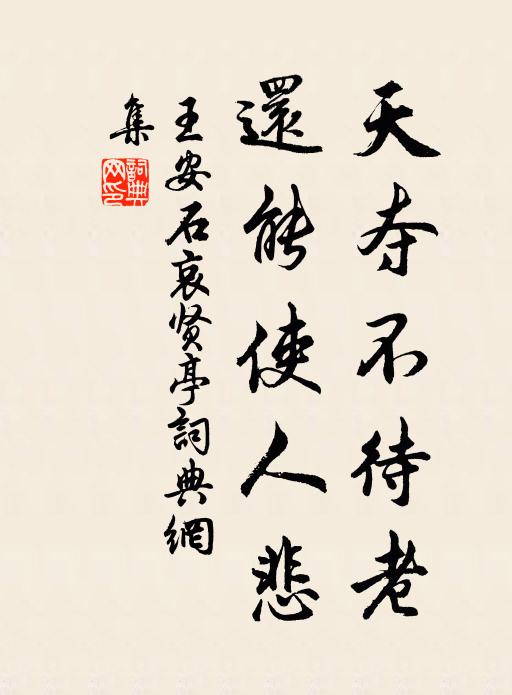 天夺不待老
還能使人悲
王安石哀贤亭詞典網
集
詞典
网印